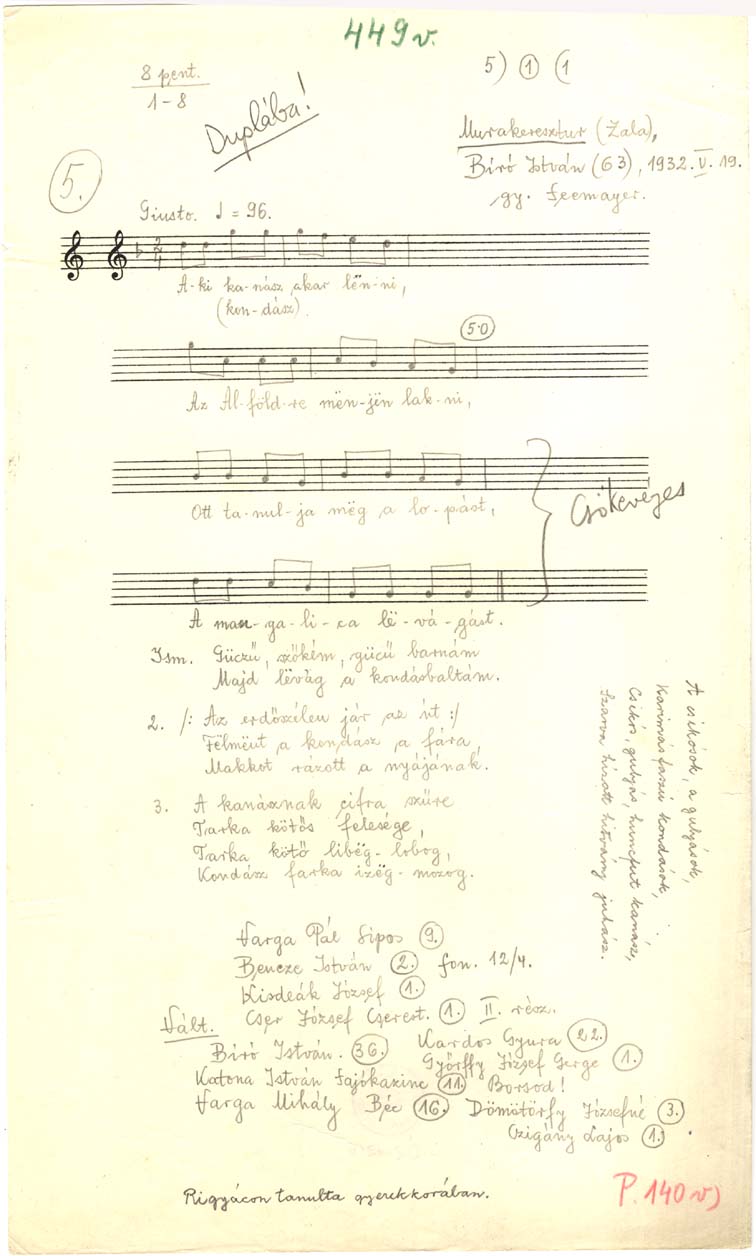 449v.
8 pent.
1-8
5) ① (1
Duplába!
Murakeresztur (Zala),
Bíró István (63), 1932. V. 19.
gy. Seemayer.
5.
Giusto. ♩ = 96.
2/4
A-ki ka-nász akar lën-ni,
(kon-dász).
5·0
Az Al-föld-re mën-jën lak-ni,
Ott ta-nul-ja mëg a lo-pást,
Csökevéges
A man-ga-li-ca lë-vá-gást.
Ism. Güczü, szőkém, gücü barnám
Majd lëvág a kondásbaltám.
2. /: Az erdőszélen jár az út :/
Fëlmënt a kondász a fára,
Makkot rázott a nyájának.
3. A kanásznak cifra szüre
Tarka kötős felesége,
Tarka kötő libëg-lobog,
Kondász farka izëg-mozog.
A csikósok, a gulyások,
Karimás faszú kondások,
Csikós, gulyás, huncfut kanász,
Szarva hízott hitvány juhász.
Varga Pál Sipos 9.
Bencze István 2. fon. 12/4.
Kisdeák József 1.
Cser József Cserest. 1. II. rész.
Vált.
Kardos Gyura 22.
Bíró István. 36.
Győrffy József Gerge 1.
Katona István Sajókazinc 11. Borsod!
Varga Mihály Béc 16. Dömötörfy Józsefné 3.
Czigány Lajos 1.
Rigyácon tanulta gyerekkorában.
P. 140v)